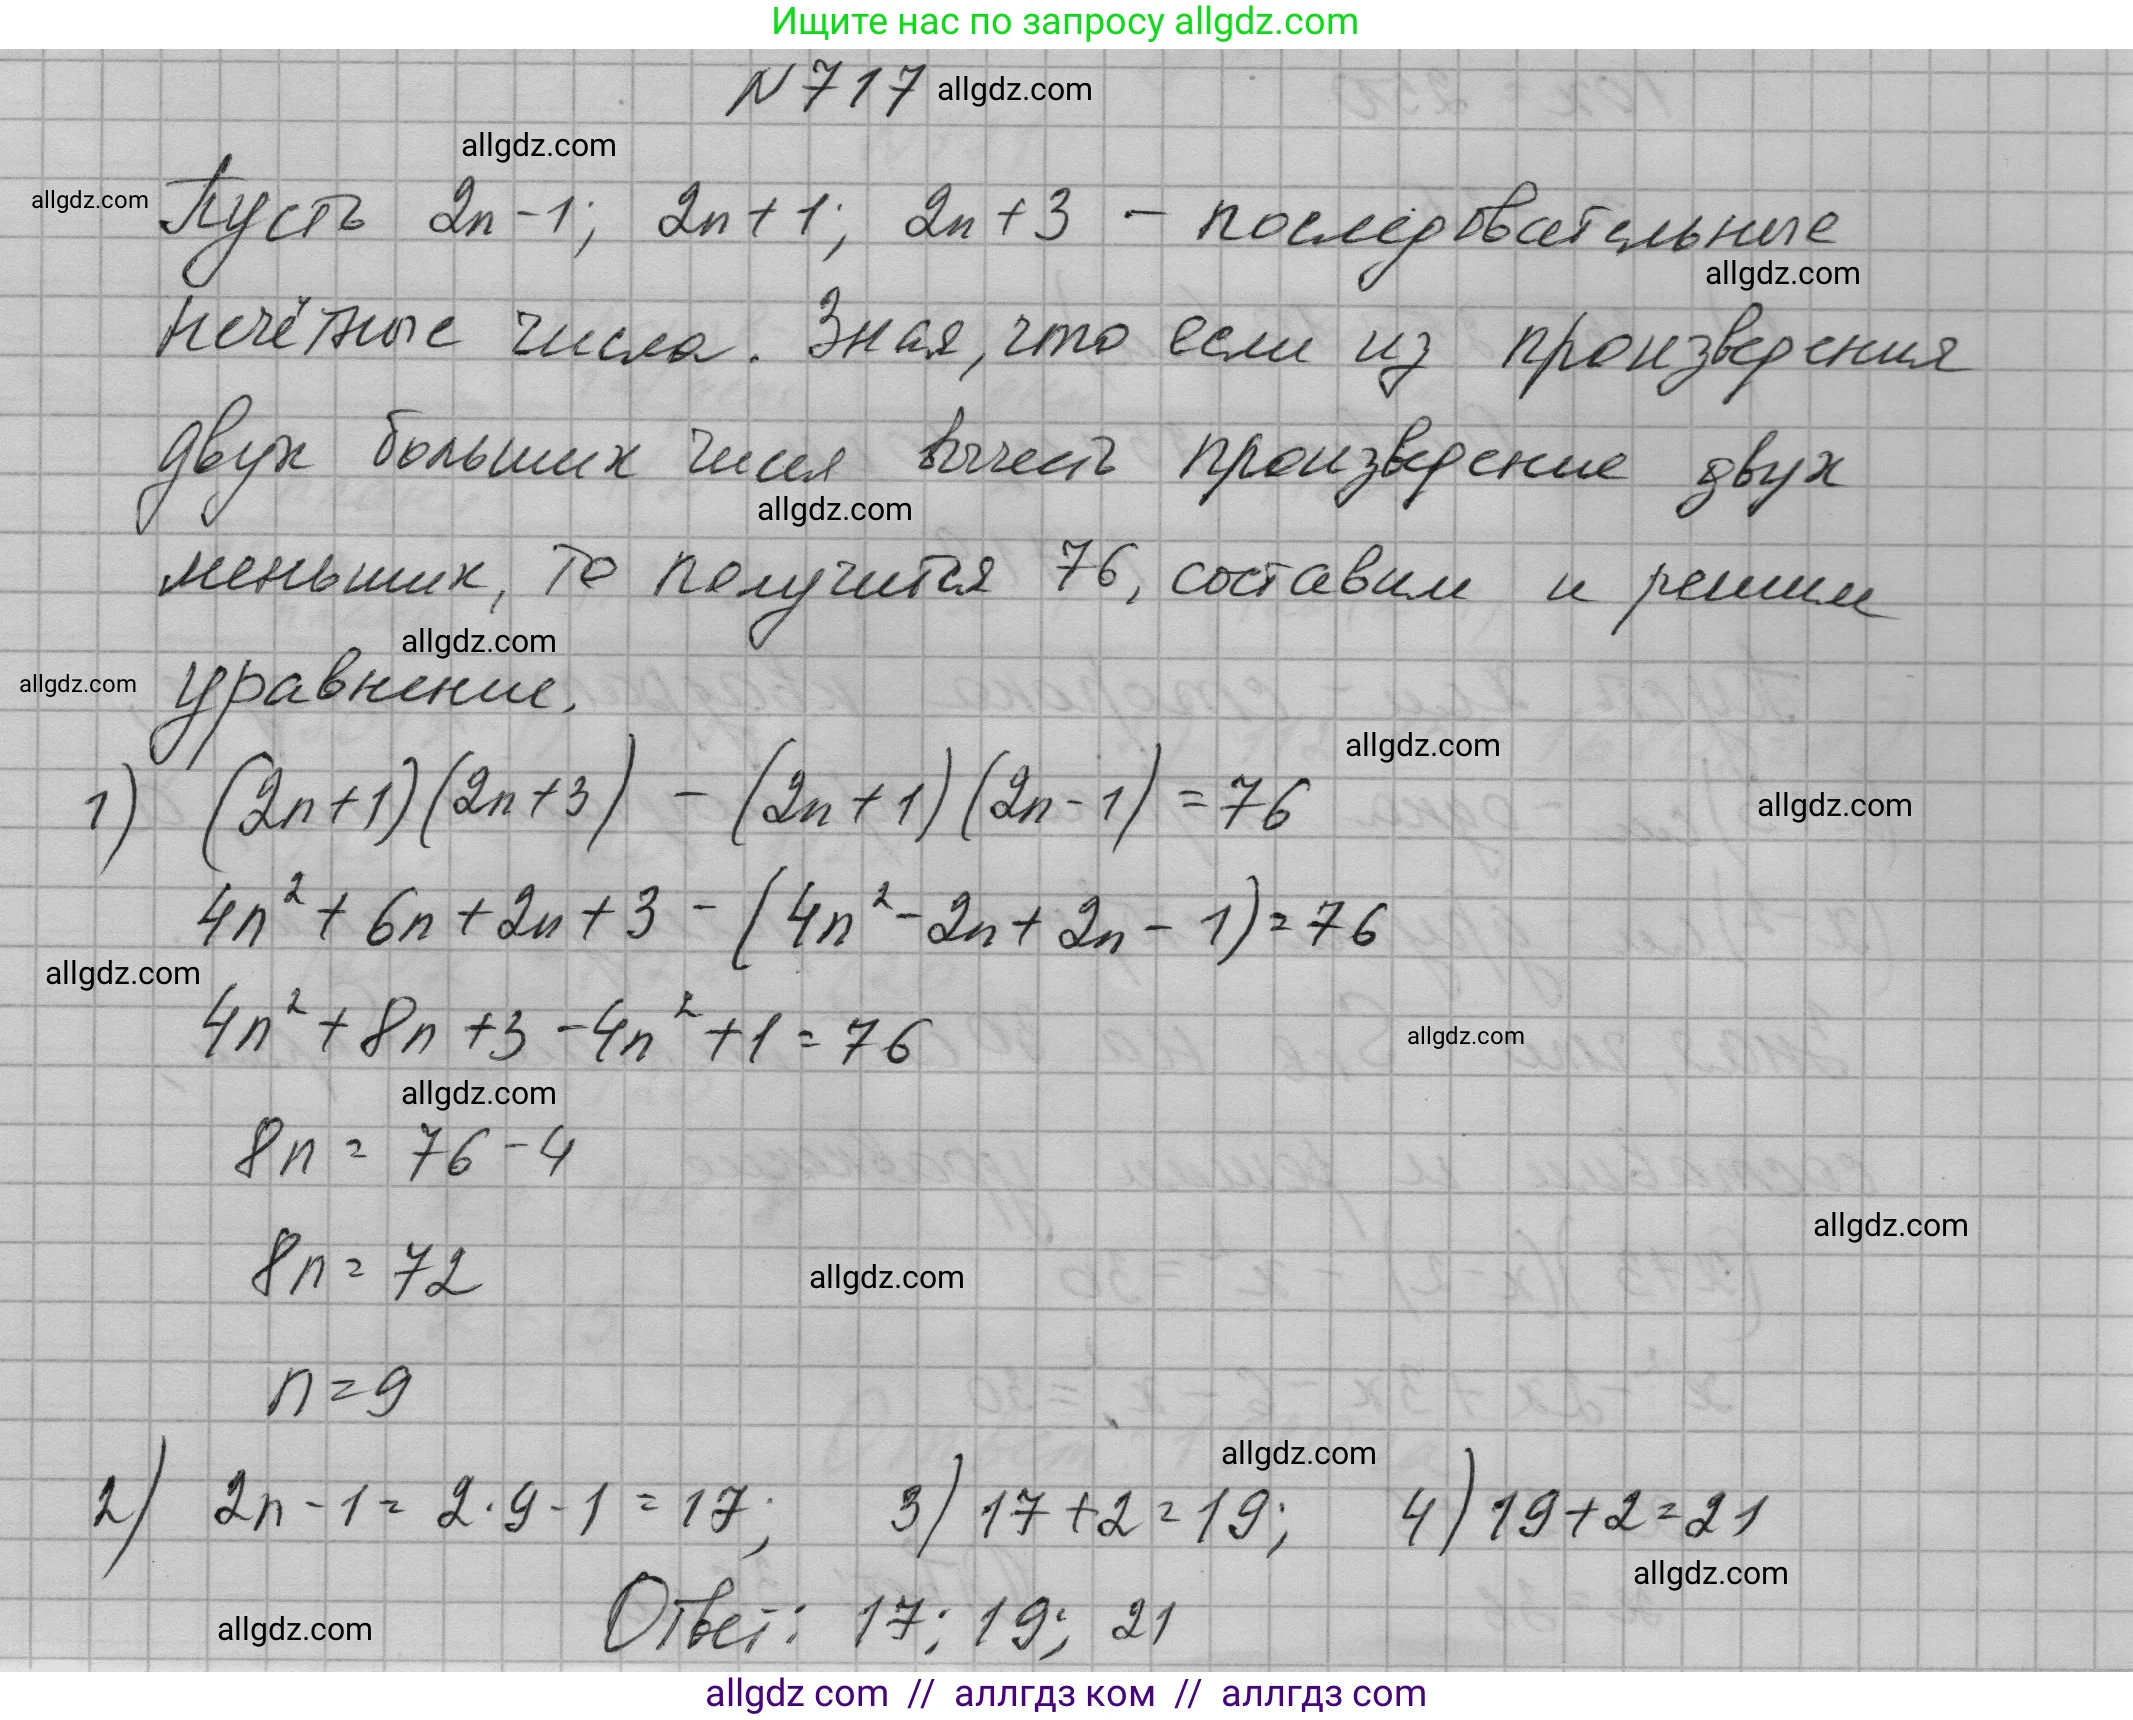 Ищите нас по запросу allgdz.com
N 717 allgdz.com
allgdz.com
allgdz.com
Пусть 2n-1; 2n+1; 2n+3 - последовательные
allgdz.com
нечётные числа. Зная, что если из произведения
двух больших чисел вычесть произведение двух
allgdz.com
меньших, то получится 76, составим и решим
allgdz.com
allgdz.com
уравнение.
allgdz.com
1) (2n+1)(2n+3) - (2n+1)(2n-1) = 76
allgdz.com
4n² + 6n + 2n + 3 - (4n² - 2n + 2n - 1) = 76
allgdz.com
4n² + 8n + 3 - 4n² + 1 = 76
allgdz.com
allgdz.com
8n = 76 - 4
allgdz.com
8n = 72
allgdz.com
n = 9
allgdz.com
2) 2n - 1 = 2·9 - 1 = 17; 3) 17 + 2 = 19; 4) 19 + 2 = 21
allgdz.com
allgdz.com
Ответ: 17; 19; 21
allgdz com // аллгдз ком // аллгдз com